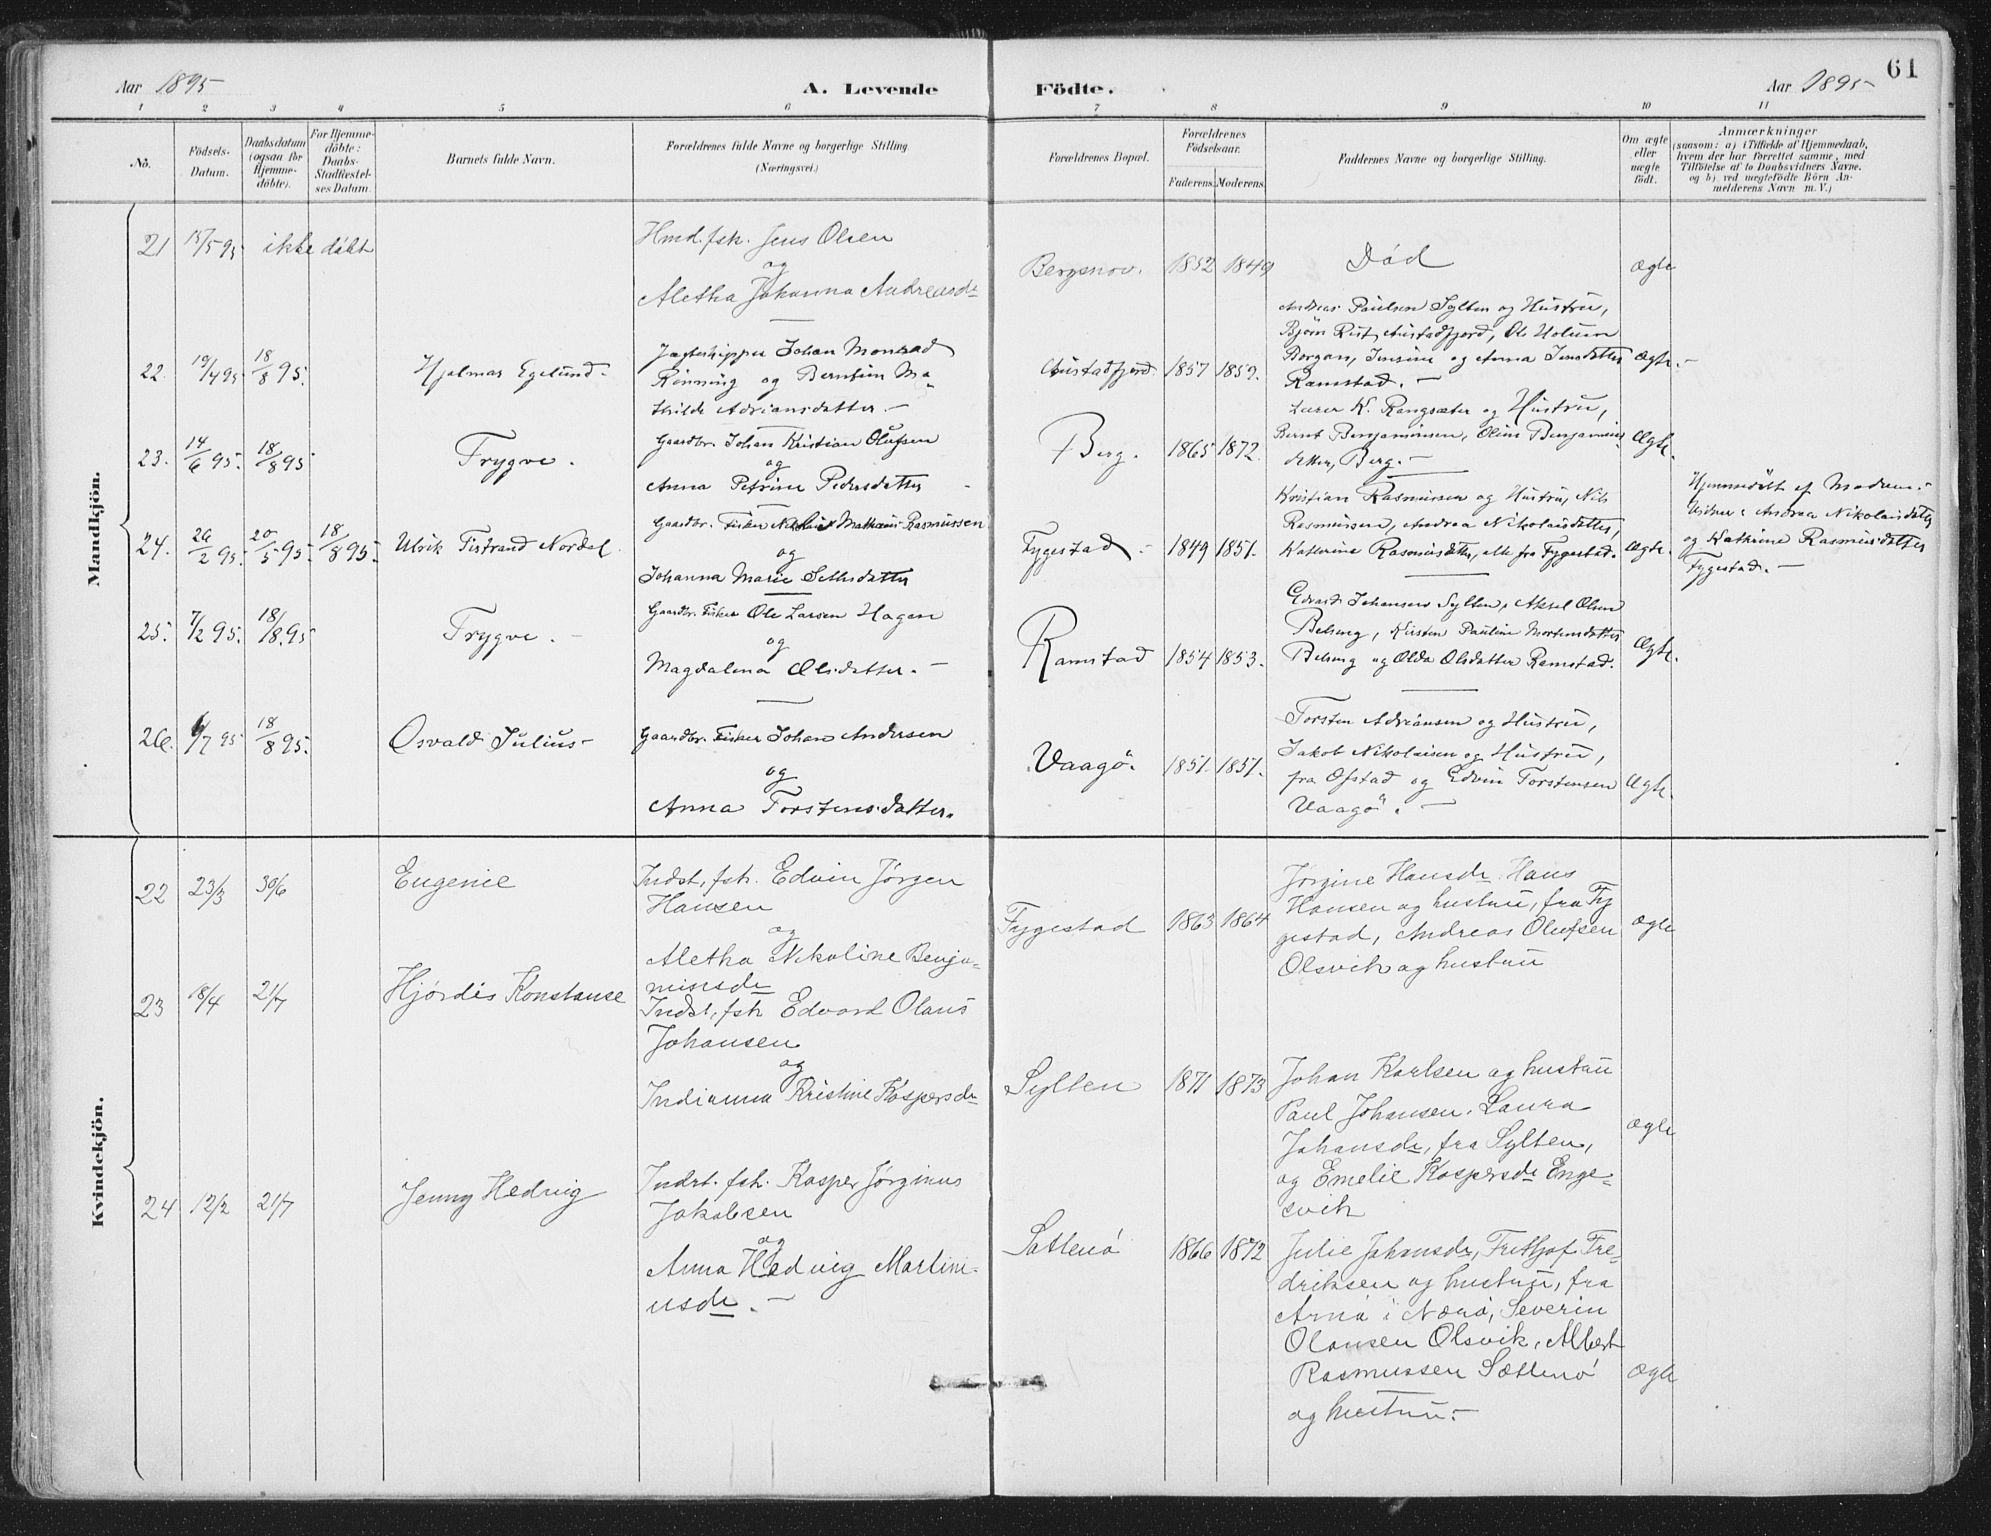 Aar 1895
A. Levende Födte.
Aar 1895
61
1 2 3 4 5 6 7 8 9 10 11
No.
Födsels-Datum.
Daabsdatum (ogsaa for Hjemme-döbte).
For Hjemme-döbte: Daabs-Stadfæstel-ses Datum.
Barnets fulde Navn.
Forældrenes fulde Navne og borgerlige Stilling
(Næringsvei.)
Forældrenes Bopæl.
Forældrenes Födselsaar.
Faderens. Moderens.
Faddernes Navne og borgerlige Stilling.
Om ægte eller uægte födt.
Anmærkninger
(saasom: a) i Tilfælde af Hjemmedaab,
hvem der har forrettet samme, med
Tilföielse af to Daabsvidners Navne,
og b) ved uægtefödte Börn An-
melderens Navn m. V.)
Mandkjön.
21 15/5 95 ikke døbt
Hmd. fsk. Jens Olsen
og
Aletha Johanna Andreasdr
Bergsnov. 1852 1849 Død ægte
22. 19/4 95 18/8 95. Hjalmar Egelund.
Jagtskipper Johan Monrad
Rönning og Berntine Ma-
thilde Adriansdatter.
Austadfjord. 1857 1859.
Andreas Paulsen Sylten og Hustru,
Björn Rist, Austadfjord, Ole Holum
Borgan, Jensine og Anna Jensdatter
Ramstad.
Ægte.
23. 14/6 95. 18/8 95 Trygve.
Gaardbr. Johan Kristian Olufsen
og
Anna Petrine Pedersdatter
Berg. 1865 1872.
Laurer K. Rangsæter og Hustru,
Bernt Benjaminsen, Oline Benjamins
datter, Berg.
Ægte.
24. 26/2 95. 20/5 95. 18/8 95. Ulrik Tistrand Nordal.
Gaardbr. Fisker Mathæus Rasmussen
og
Johanna Marie Sethsdatter
Fygestad 1849 1851.
Kristian Rasmussen og Hustru, Nils
Rasmussen, Andrea Nikolaisdatter,
Katherine Rasmusdatter, alle fra Fygestad.
Ægte.
Hjemmedöbt af Moderen.
Vidner: Andrea Nikolaisdatter
og Kathrine Rasmusdatter
Fygestad.
25. 7/2 95. 18/8 95 Trygve.
Gaardbr. Fisker Ole Larsen Hagen
og
Magdalena Olsdatter.
Ramstad 1854 1853.
Edvard Johansen Sylten, Aksel Olsen
Belseng, Kirsten Pauline Mortensdatter
Belseng og Olda Olsdatter Ramstad.
Ægte.
26. 6/7 95 18/8 95. Osvald Julius
Gaardbr. Fisker Johan Andersen
og
Anna Torstensdatter.
Vaagö. 1851. 1851.
Torsten Adriansen og Hustru,
Jakob Nikolaisen og Hustru,
fra Ofstad og Edvin Torstensen
Vaagö.
Ægte.
Kvindekjön.
22 23/3 30/6 Eugenie
Indst. fsk. Edvin Jørgen
Hansen
og
Aletha Nikoline Benja-
minsdr
Fygestad 1863 1864
Jørgine Hansdr. Hans
Hansen og hustru, fra Fy
gestad, Andreas Olufsen
Olsvik og hustru
ægte
23 18/4 21/7 Hjørdis Konstanse
Indst. fsk Edvard Olaus
Johansen
og
Indianna Kristine Kaspersdr
Sylten 1871 1873
Johan Karlsen og hustru
Paul Johansen, Laura
Johansdr, fra Sylten,
og Emelie Kaspersdr Enge-
svik
ægte
24 12/2 21/7 Jenny Hedvig
Indst. fsk. Kasper Jørginus
Jakobsen
og
Anna Hedvig Martini-
usdr.
Sætterø 1866 1872
Julie Johansdr, Frithjof Fre-
driksen og hustru, fra
Arnø i Nærø, Severin
Olausen Olsvik, Albert
Rasmussen Sætterø
og hustru.
ægte